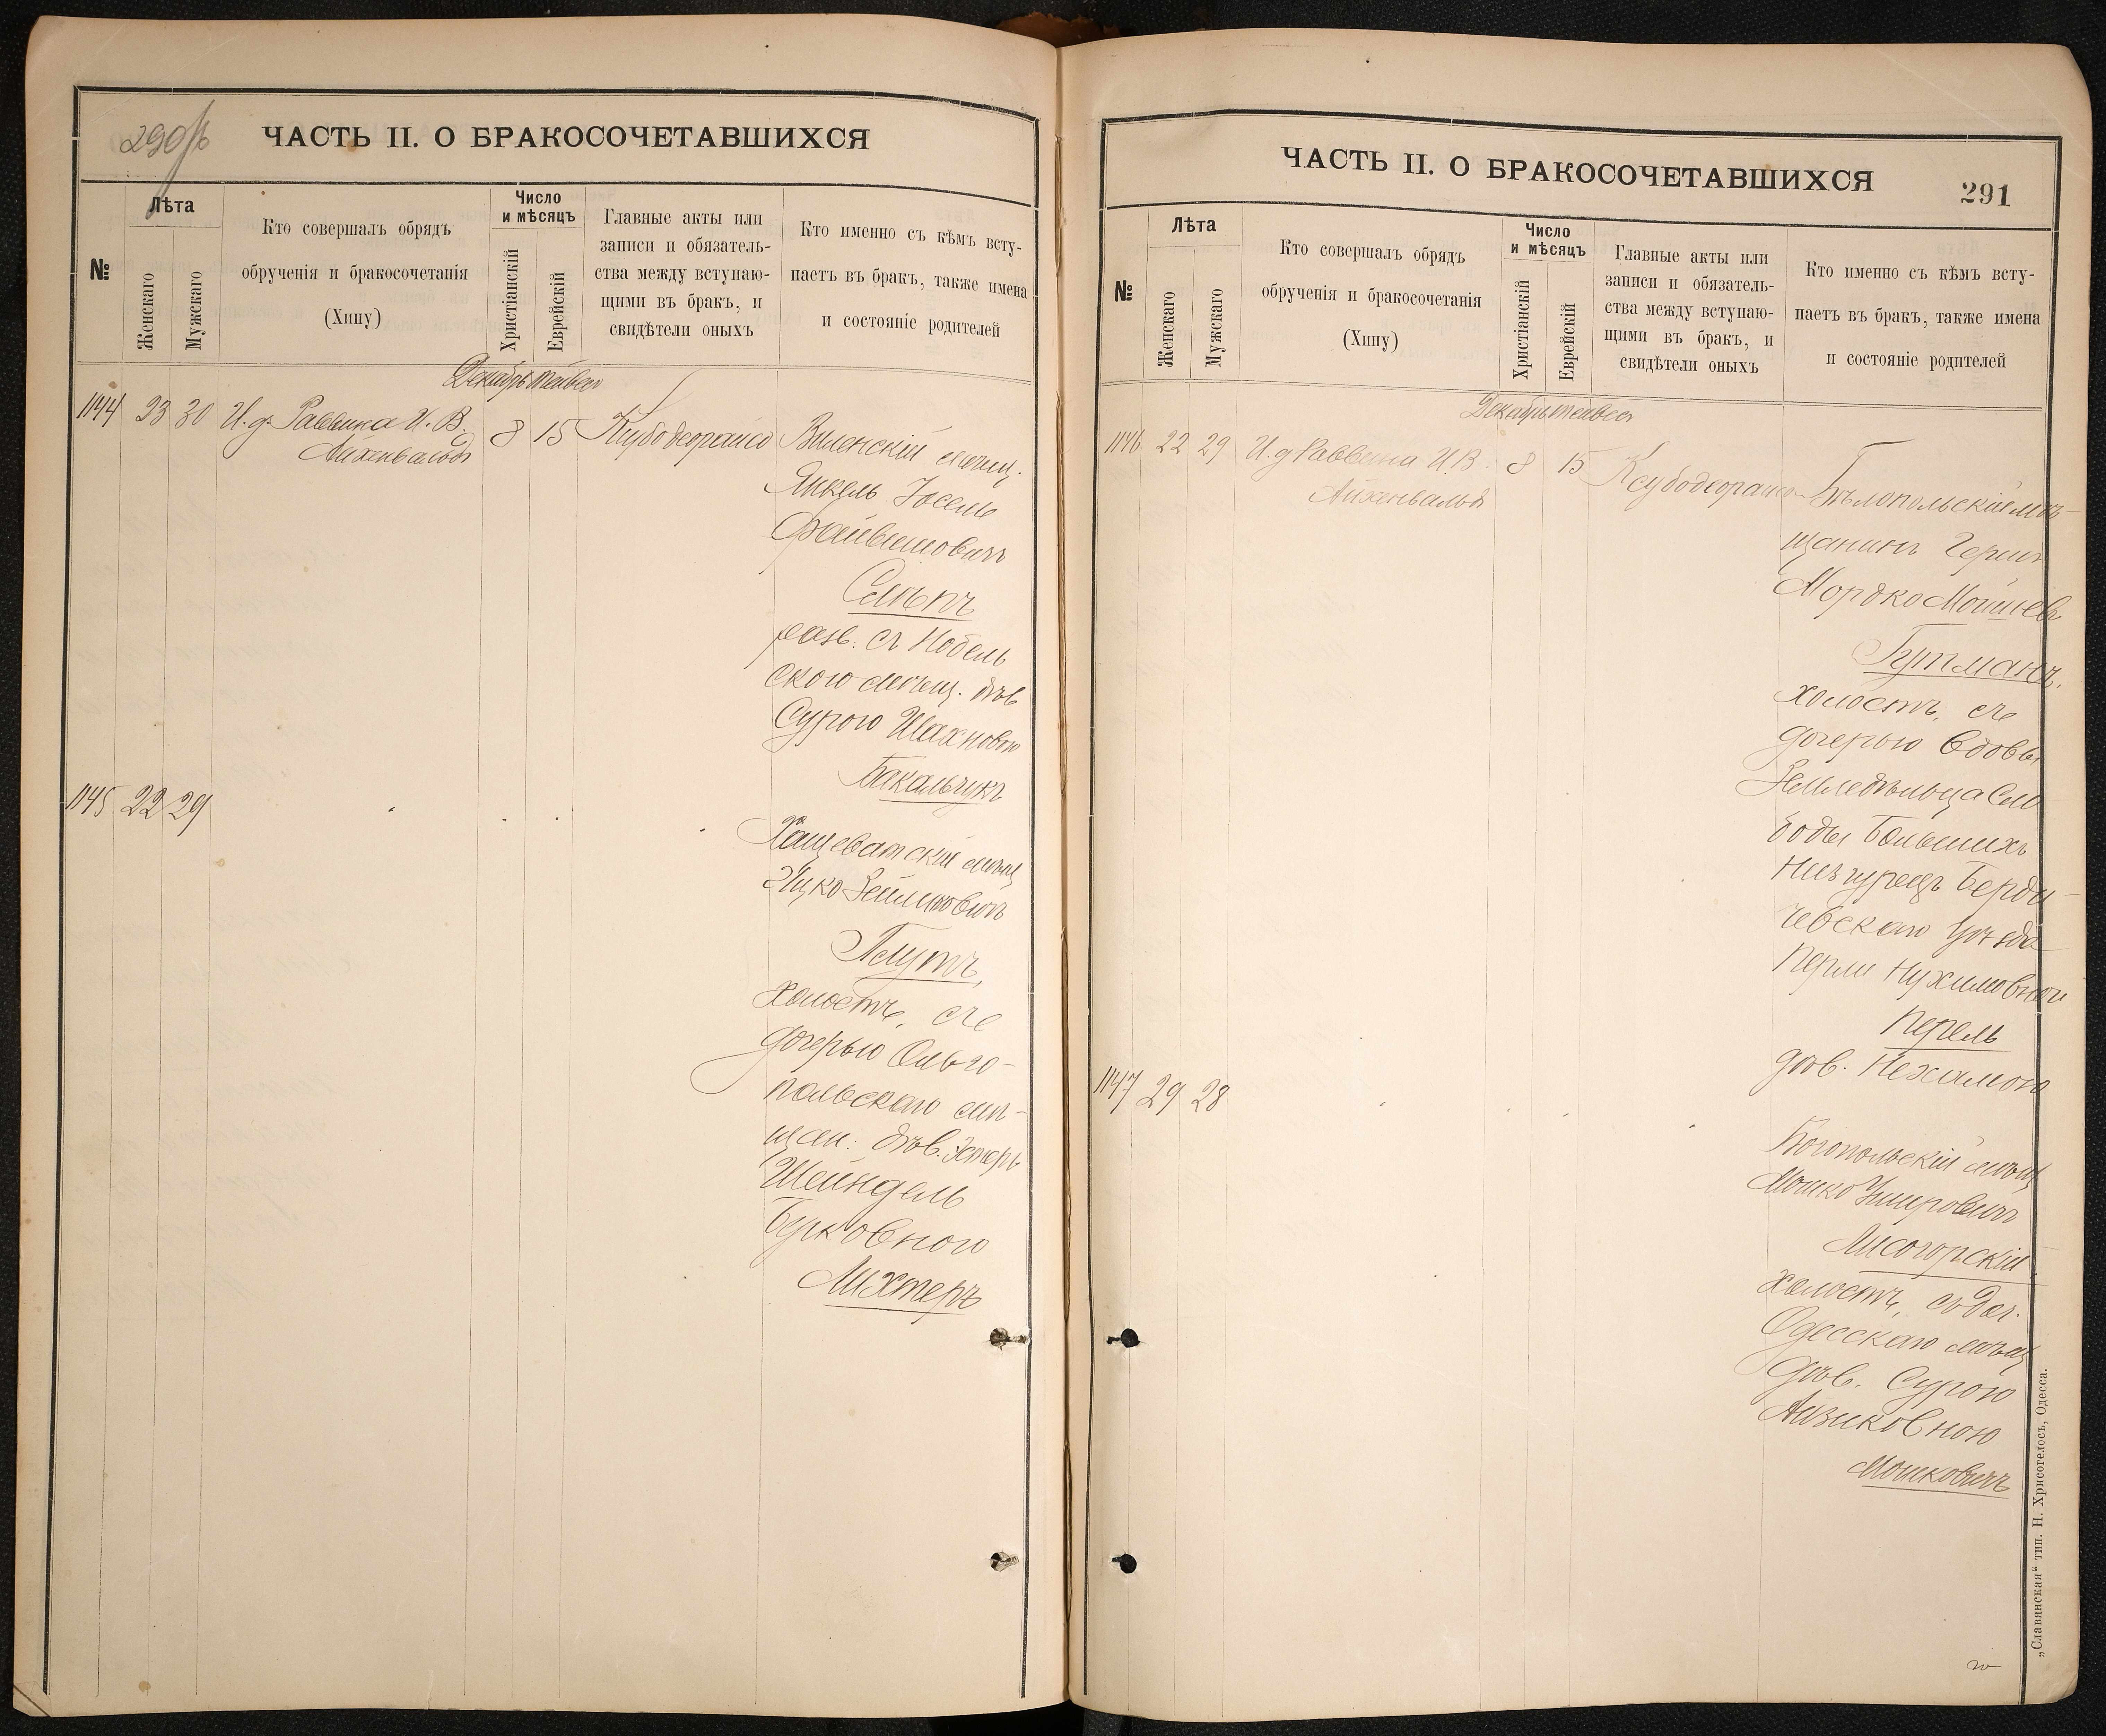 290об
ЧАСТЬ II. О БРАКОСОЧЕТАВШИХСЯ
№
Лѣта
Женскаго
Мужскаго
Кто совершалъ обрядъ
обрученія и бракосочетанія
(Хипу)
Число
и мѣсяцъ
Христіанскій
Еврейскій
Главные акты или
записи и обязатель-
ства между вступаю-
щими въ бракъ, и
свидѣтели оныхъ
Кто именно съ кѣмъ всту-
паетъ въ бракъ, также имена
и состояніе родителей
Декабрь тейвес
1144 23 30 И. д. Раввина И. В.
Айхенвальдъ
8 15
Виленскій мѣщ.
Янкель Іосель
Файвишовичъ
Слѣпъ
разв. съ Нобель
скою мѣщ. дѣв
Сурою Шахновою
Бакальчукъ
1145 22 29
Хащеватскій мѣщ
Ицко Зейликовичъ
Плутъ,
холостъ, съ
дочерью Ольго-
польскаго мѣ-
щан. дѣв. Эстеръ
Шейндель
Берковною
Лихтеръ
ЧАСТЬ II. О БРАКОСОЧЕТАВШИХСЯ
291
№
Лѣта
Женскаго
Мужскаго
Кто совершалъ обрядъ
обрученія и бракосочетанія
(Хипу)
Число
и мѣсяцъ
Христіанскій
Еврейскій
Главные акты или
записи и обязатель-
ства между вступаю-
щими въ бракъ, и
свидѣтели оныхъ
Кто именно съ кѣмъ всту-
паетъ въ бракъ, также имена
и состояніе родителей
Декабрь тейвес
1146 22 29 И. д Раввина И. В.
Айхенвальдъ
8 15
Бѣлопольскій мѣ-
щанинъ Гершъ
Мордко Мошков
Гутманъ,
холостъ, съ
дочерью вдовы
Земледѣльца Сло
боды Большихъ
Низгурецъ Верди-
чевскаго уѣзда
Перли Нухимовной
Перель
дѣв. Нехамою
1147 29 28
Богопольскій мѣщ
Мошко Умеровичъ
Лисогорскій
холостъ, съ доч.
Одесскаго мѣщ
дѣв. Сурою
Айзиковною
Мошковичъ
„Славянская“ тип. Н. Хрисогелосъ, Одесса.